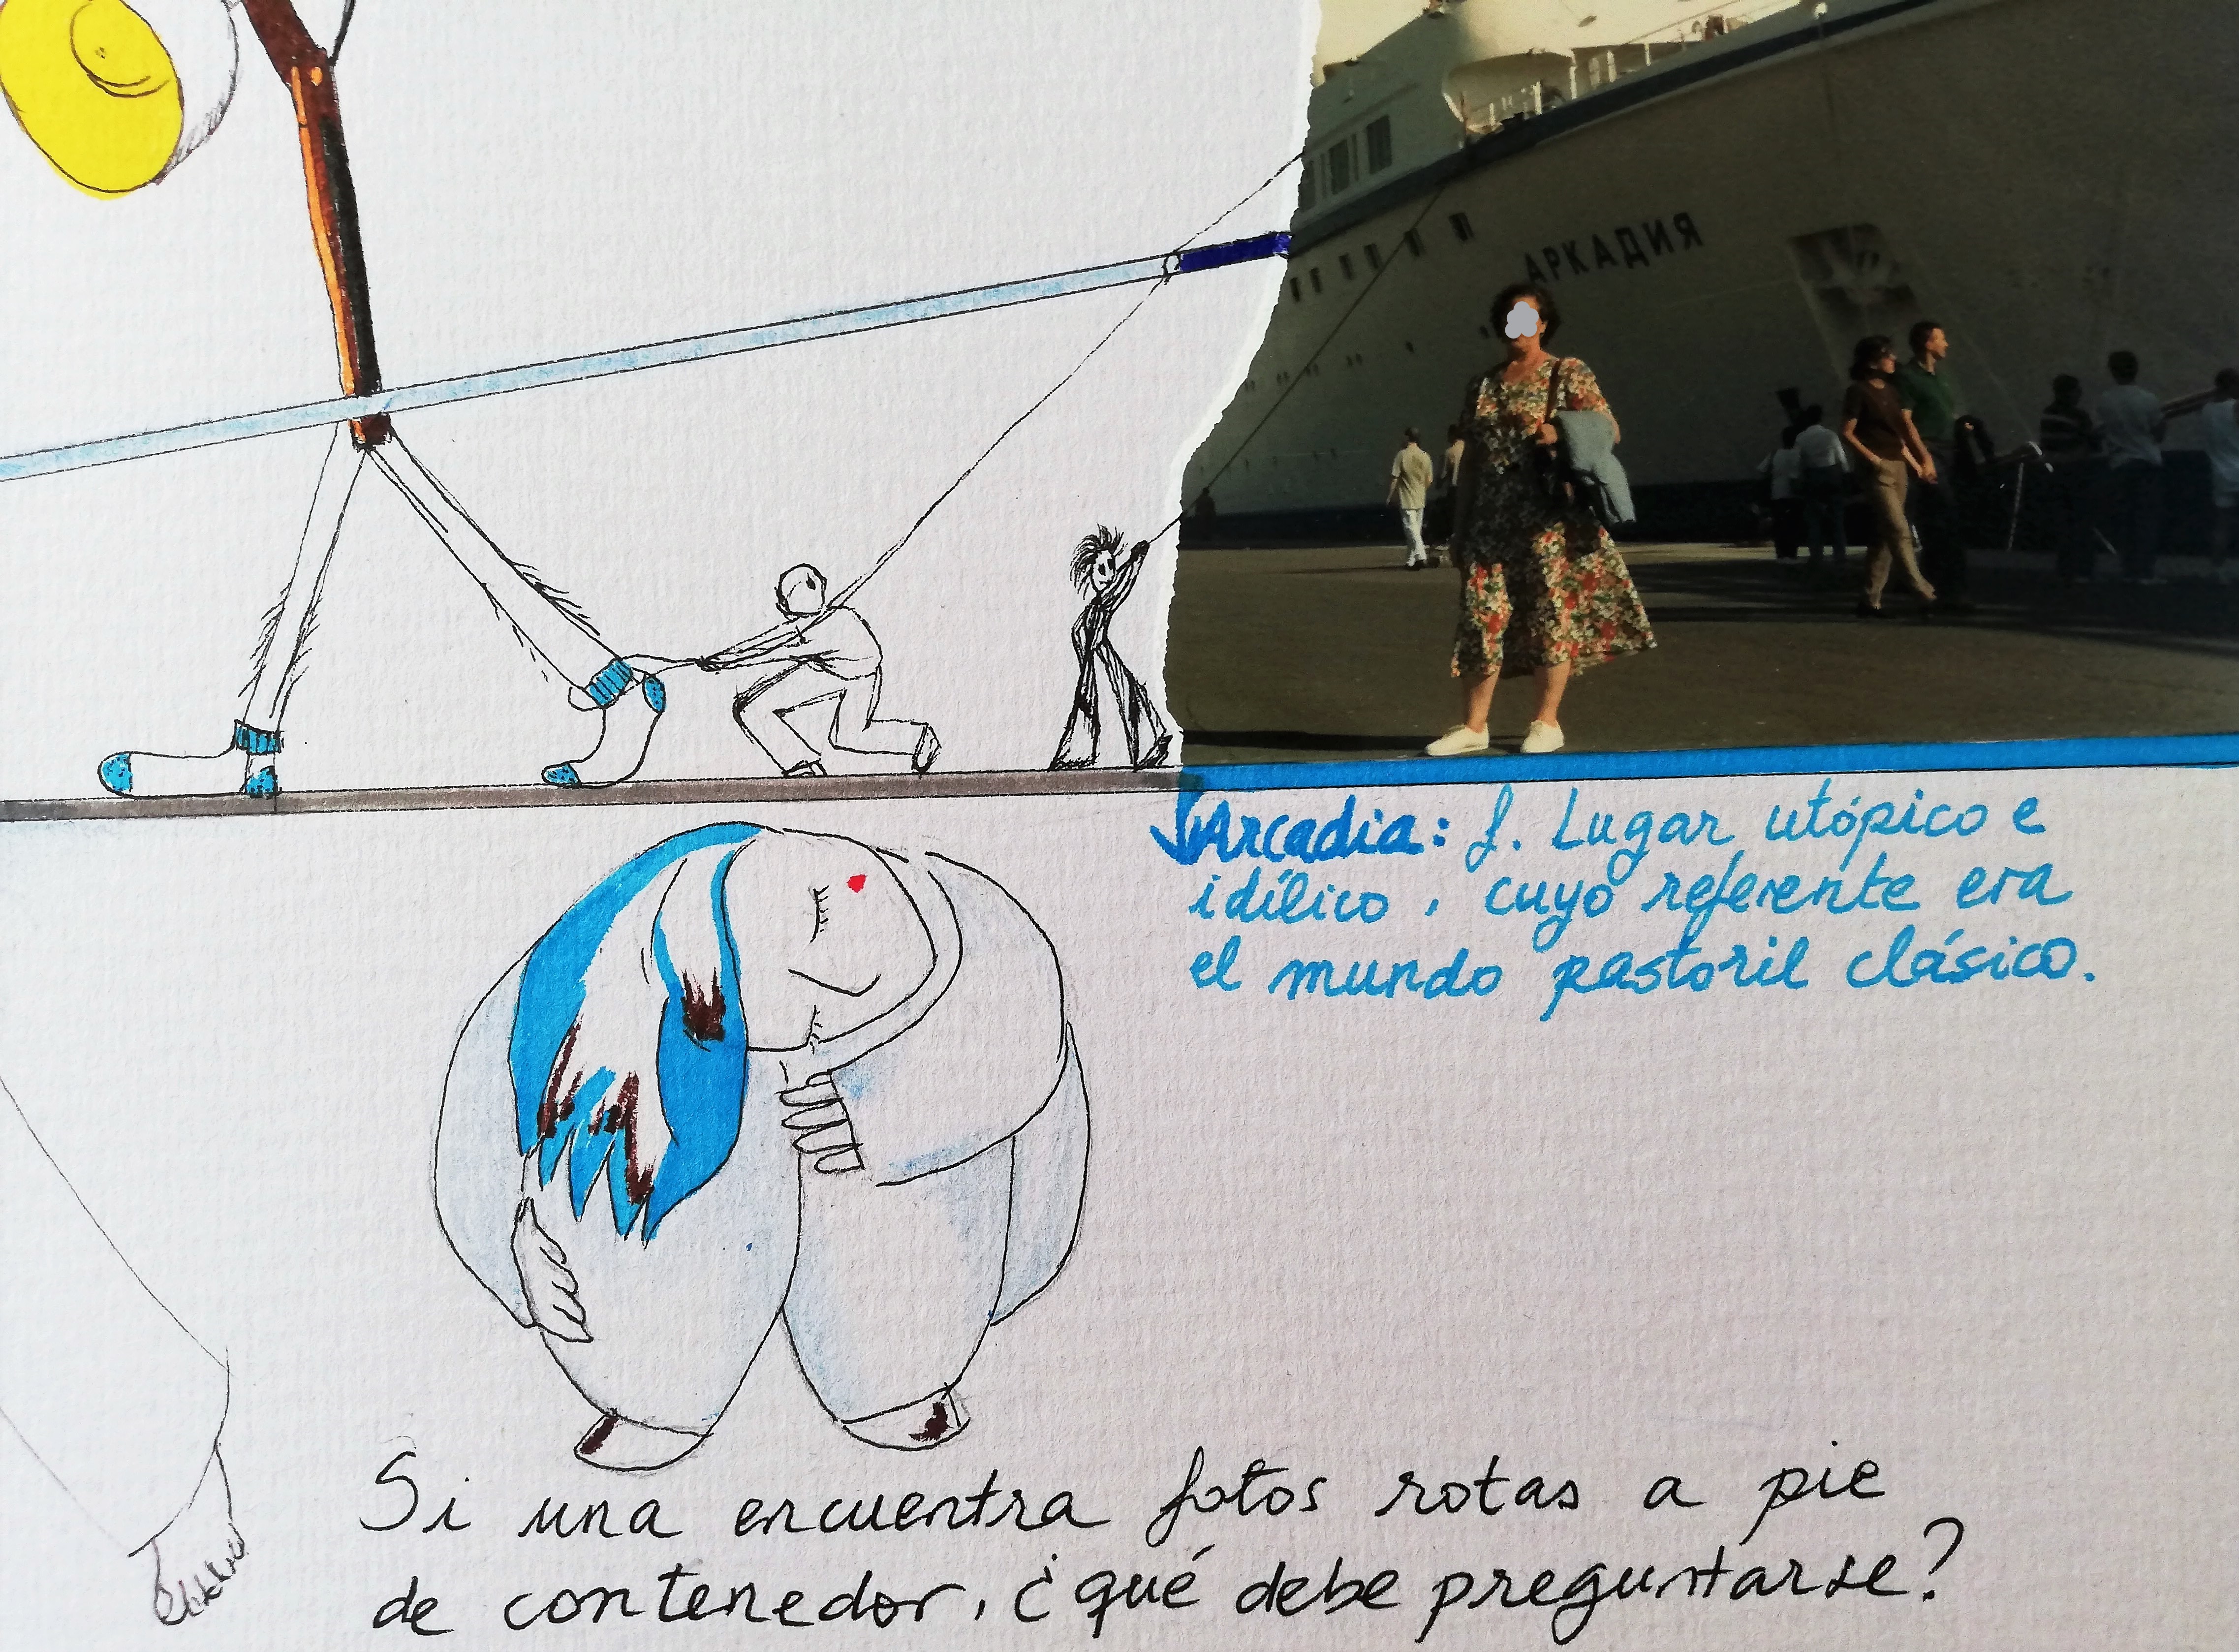 АРКАДИЯ
Arcadia: f. Lugar utópico e
idílico, cuyo referente era
el mundo pastoril clásico.
Si una encuentra fotos rotas a pie
de contenedor, ¿qué debe preguntarse?